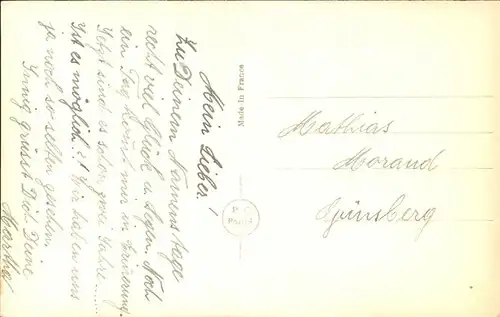 Mein Lieber!
Zu Deinem Namenstage
recht viel Glück u. Segen. Noch
ein Tag kommt mir in Erinnerung.
Jetzt sind es schon zwei Jahre......
Ist es möglich?! Wir haben uns
ja noch so selten gesehen.
Innig grüsst Dich Deine
Martha
Made in France
PARIS
Mathias
Morand
Günsberg